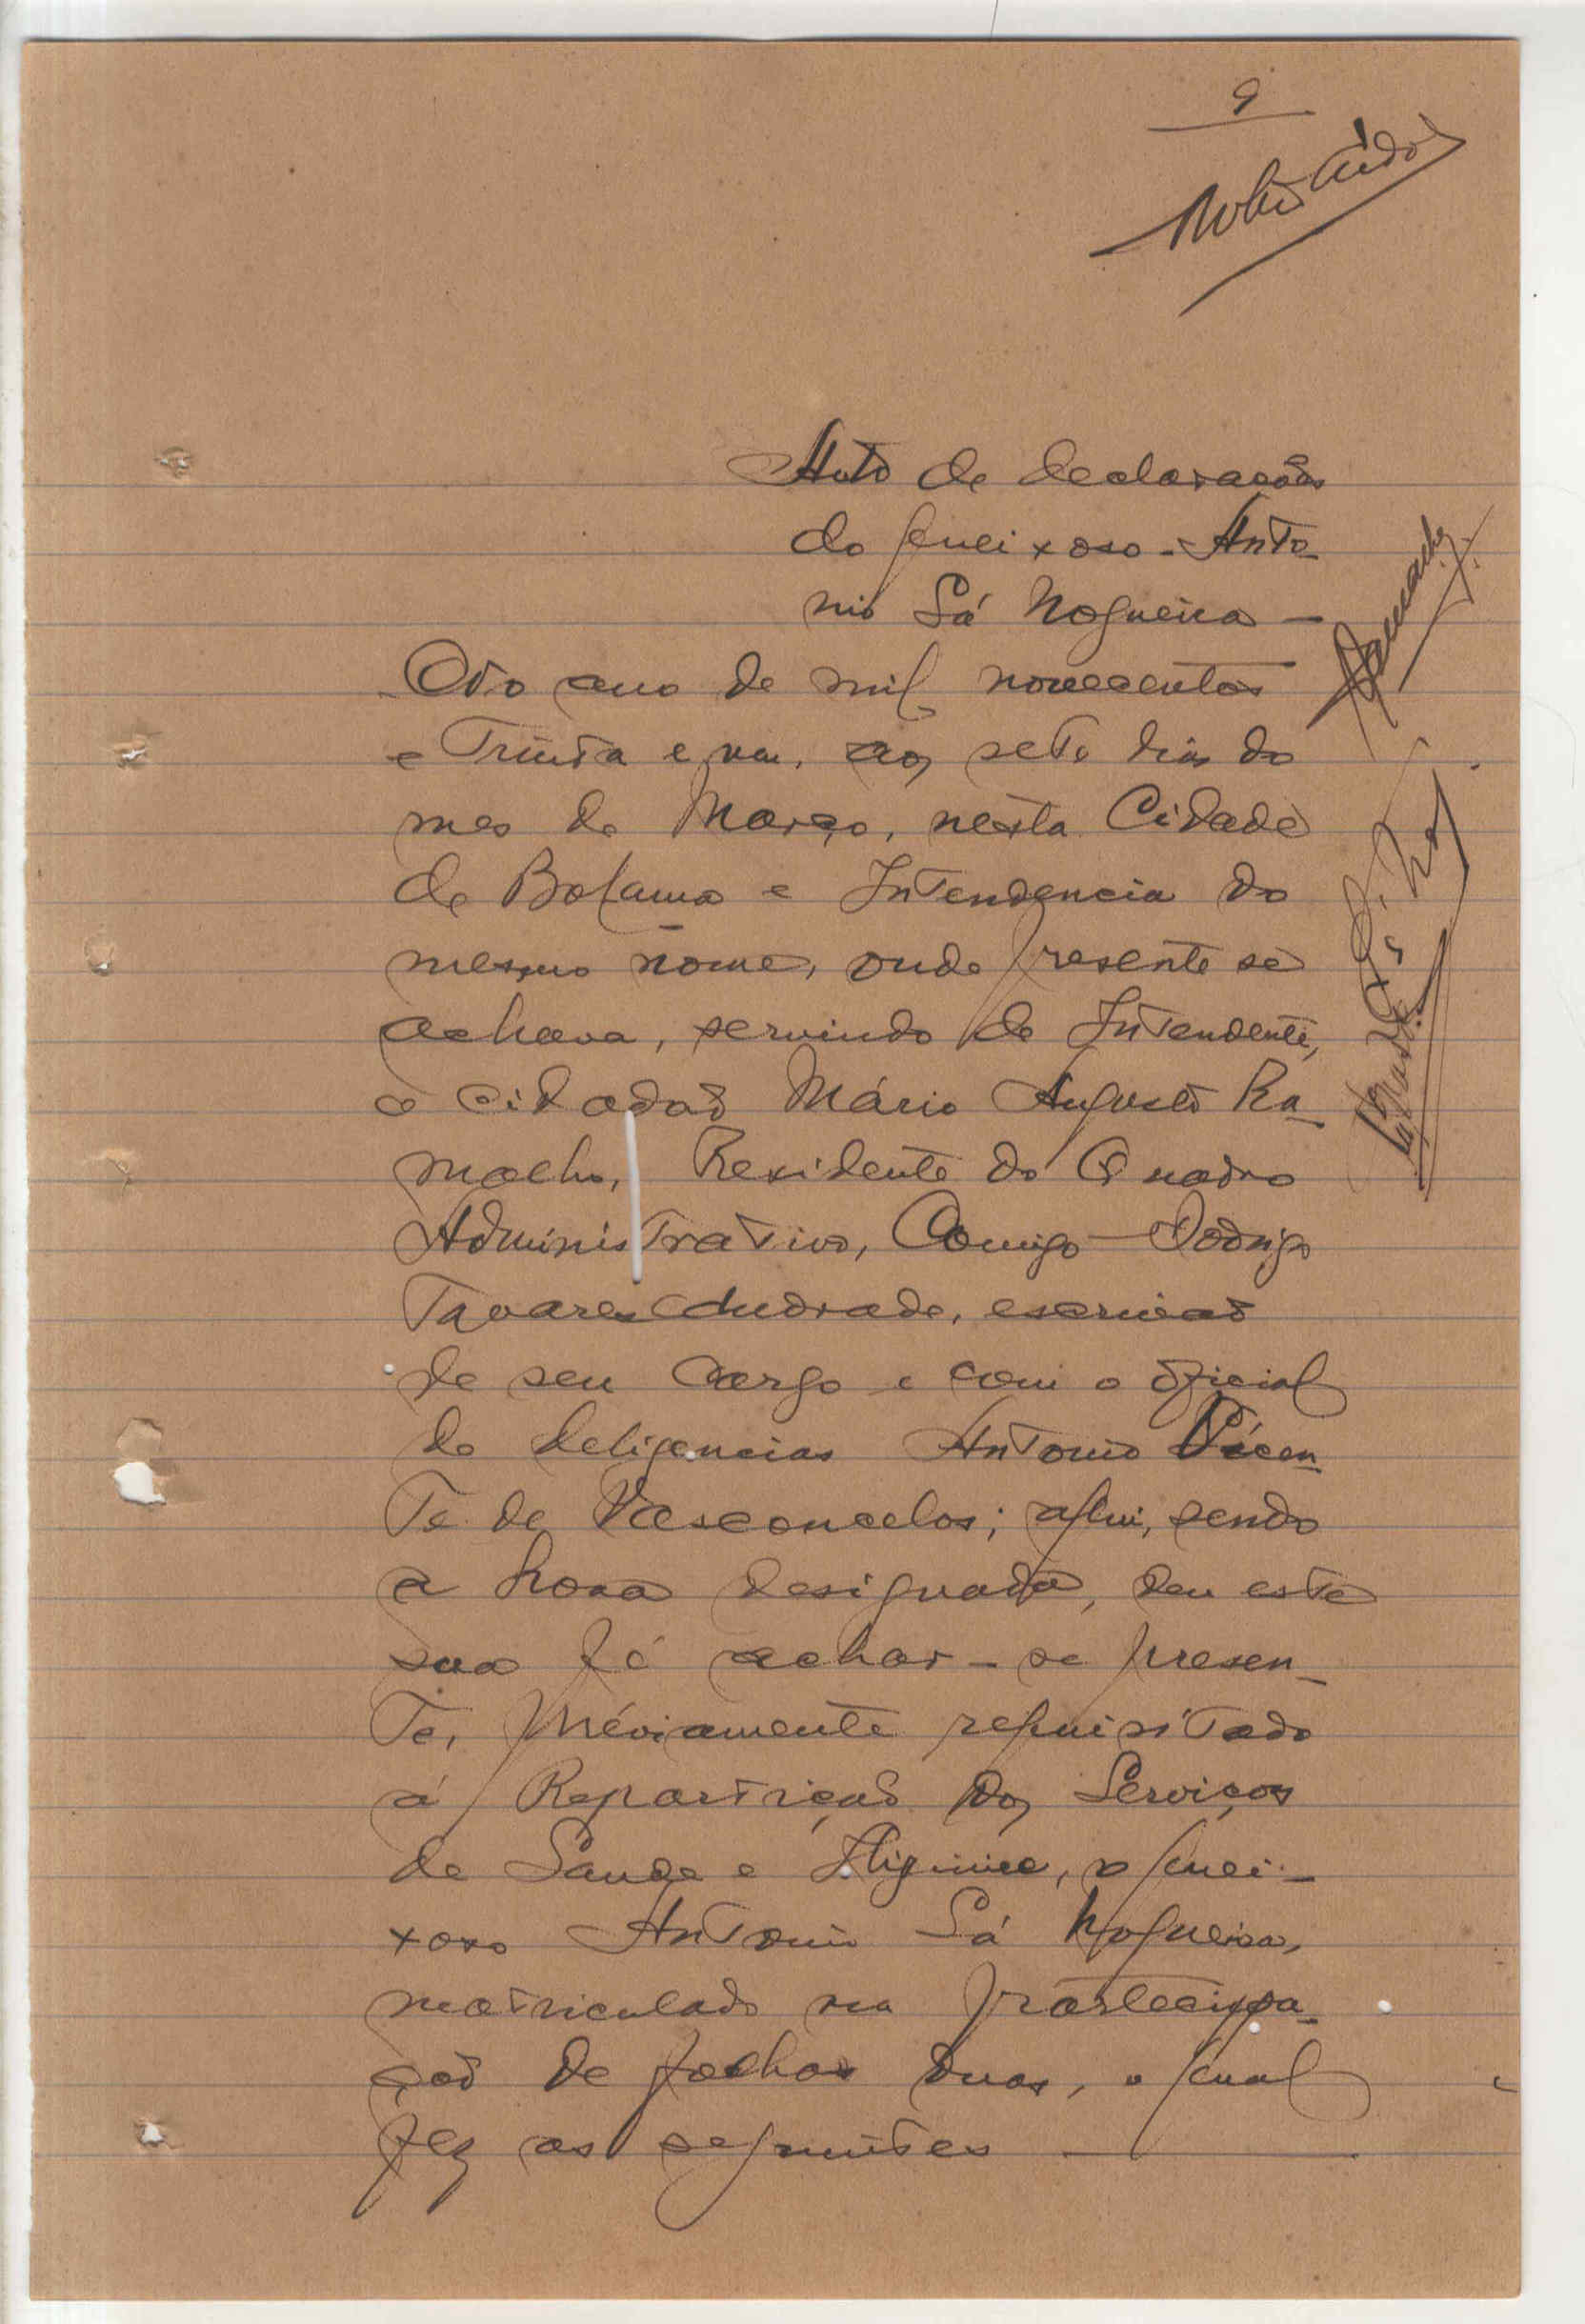 9
Auto de declarações
do queixoso - Anto-
nio Sá Nogueira -
Ao ano de mil novecentos
e Trinta e um, aos sete dias do
mes de Março, nesta Cidade
de Bolama e Intendencia do
mesmo nome, onde presente se
achava, servindo de Intendente,
o cidadaõ Mário Augusto Ra-
malho, Residente do Quadro
Administrativo, Comigo Rodrigo
Tavares Andrade, escrivaõ
de seu cargo e com o oficial
de deligencias Antonio Vicen-
te de Vasconcelos; aqui, sendo
a hora designada, deu este
sua fé achar-se presen-
te, préviamente requisitado
á Repartiçaõ dos Serviços
de Saude e Higiene, o quei-
xoso Antonio Sá Nogueira,
matriculado na partecipa-
çaõ de folhas duas, o qual
fez as seguintes -
Ramalho